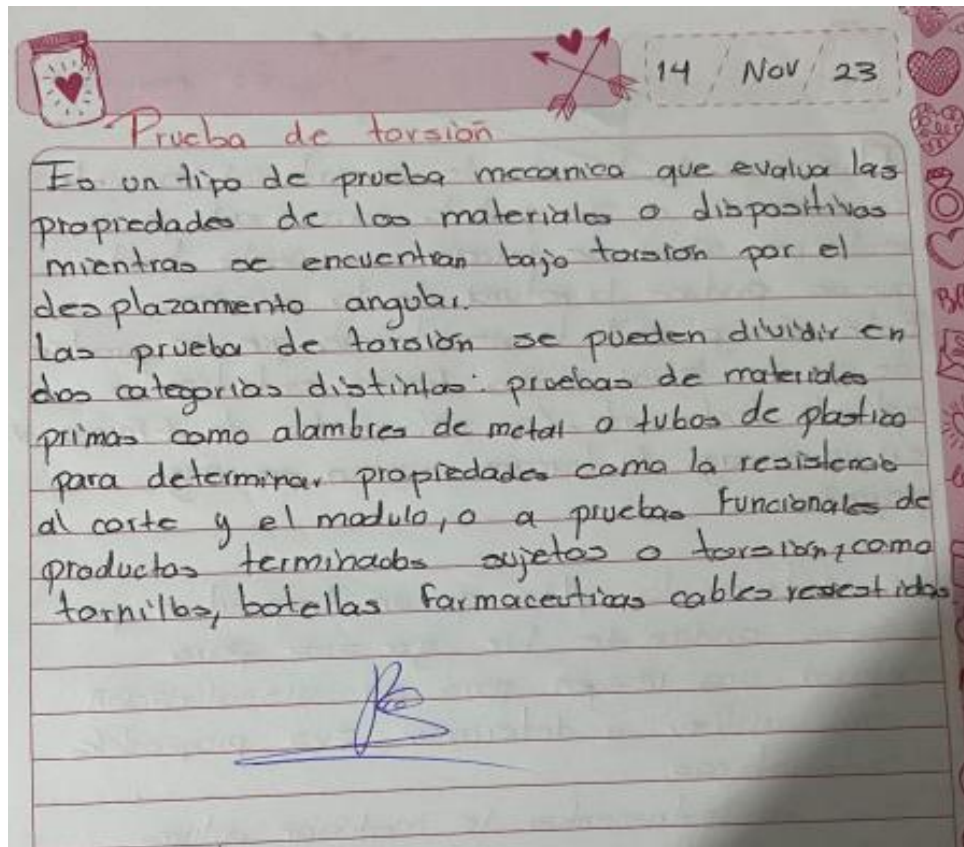 14 / Nov / 23
Prueba de torsión
Es un tipo de prueba mecanica que evalua las
propiedades de los materiales o dispositivos
mientras se encuentran bajo torsion por el
desplazamiento angular.
Las prueba de torsión se pueden dividir en
dos categorias distintas: pruebas de materiales
primas como alambres de metal o tubos de plastico
para determinar propiedades como la resistencia
al corte y el modulo, o a pruebas Funcionales de
productos terminados sujetos a torsion, como
tornillos, botellas farmaceuticas cables revestidos